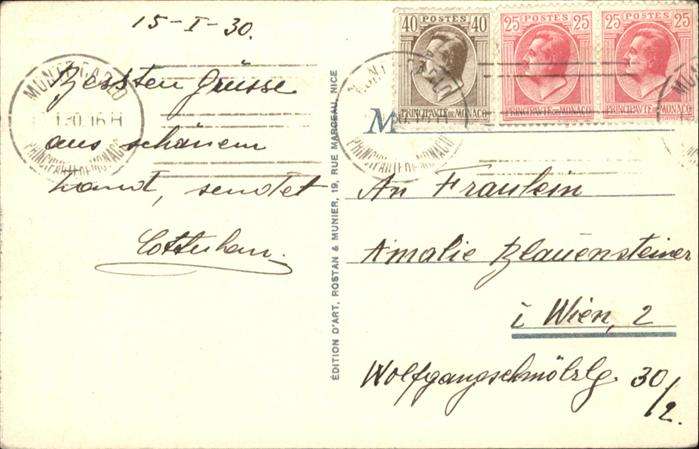 15-I-30.
40 POSTES 40
PRINCIPAUTÉ DE MONACO
25 POSTES 25
PRINCIPAUTÉ DE MONACO
25 POSTES 25
PRINCIPAUTÉ DE MONACO
MONTE CARLO
1 30 16 H
PRINCIPAUTE DE MONACO
MONTE CARLO
16 H
PRINCIPAUTE DE MONACO
M
Bessten Grüsse
aus schönem
Land, sendet
ÉDITION D'ART, ROSTAN & MUNIER, 19, RUE MARCEAU, NICE
An Fräulein
Amalie Blauensteiner
i Wien, 2
Wolfgangschmälzlg 30/2.